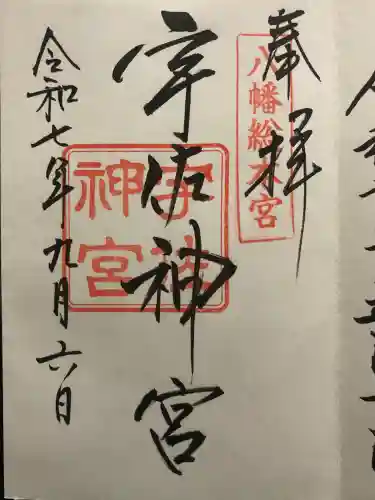 奉拝
八幡総本宮
宇佐神宮
宇佐
神宮
令和七年九月六日